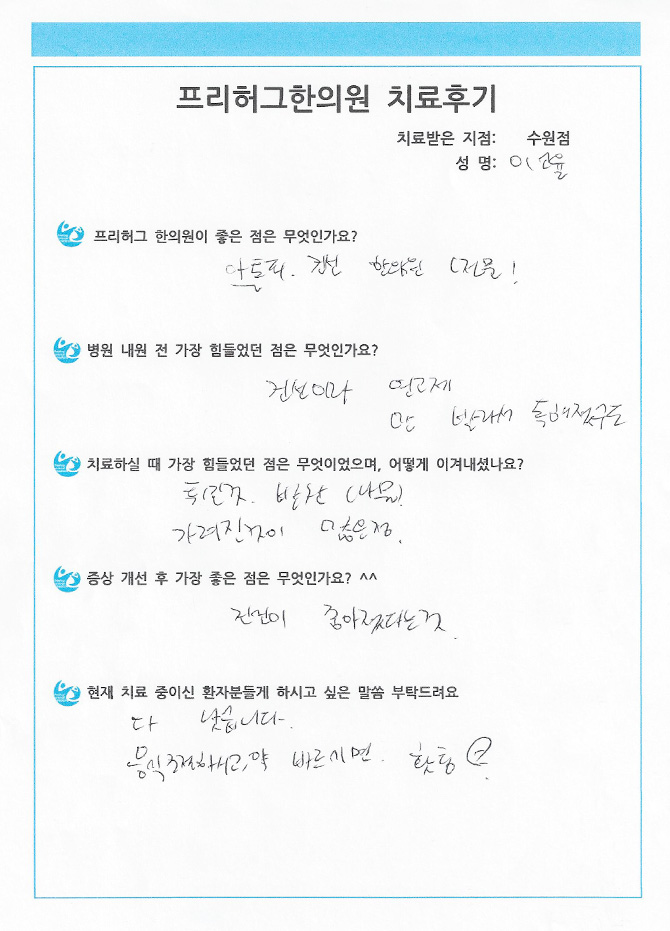 프리허그한의원 치료후기
치료받은 지점: 수원점
성 명:
프리허그 한의원이 좋은 점은 무엇인가요?
아토피. 건선 한의원 (전문!
병원 내원 전 가장 힘들었던 점은 무엇인가요?
건선이라 연고제
만 발라서 독해졌구든
치료하실 때 가장 힘들었던 점은 무엇이었으며, 어떻게 이겨내셨나요?
가려진것이 많은점.
증상 개선 후 가장 좋은 점은 무엇인가요? ^^
건선이 좋아졌다는것.
현재 치료 중이신 환자분들게 하시고 싶은 말씀 부탁드려요
다 낫습니다.
음식조절하시고, 약 바르시면. 홧팅